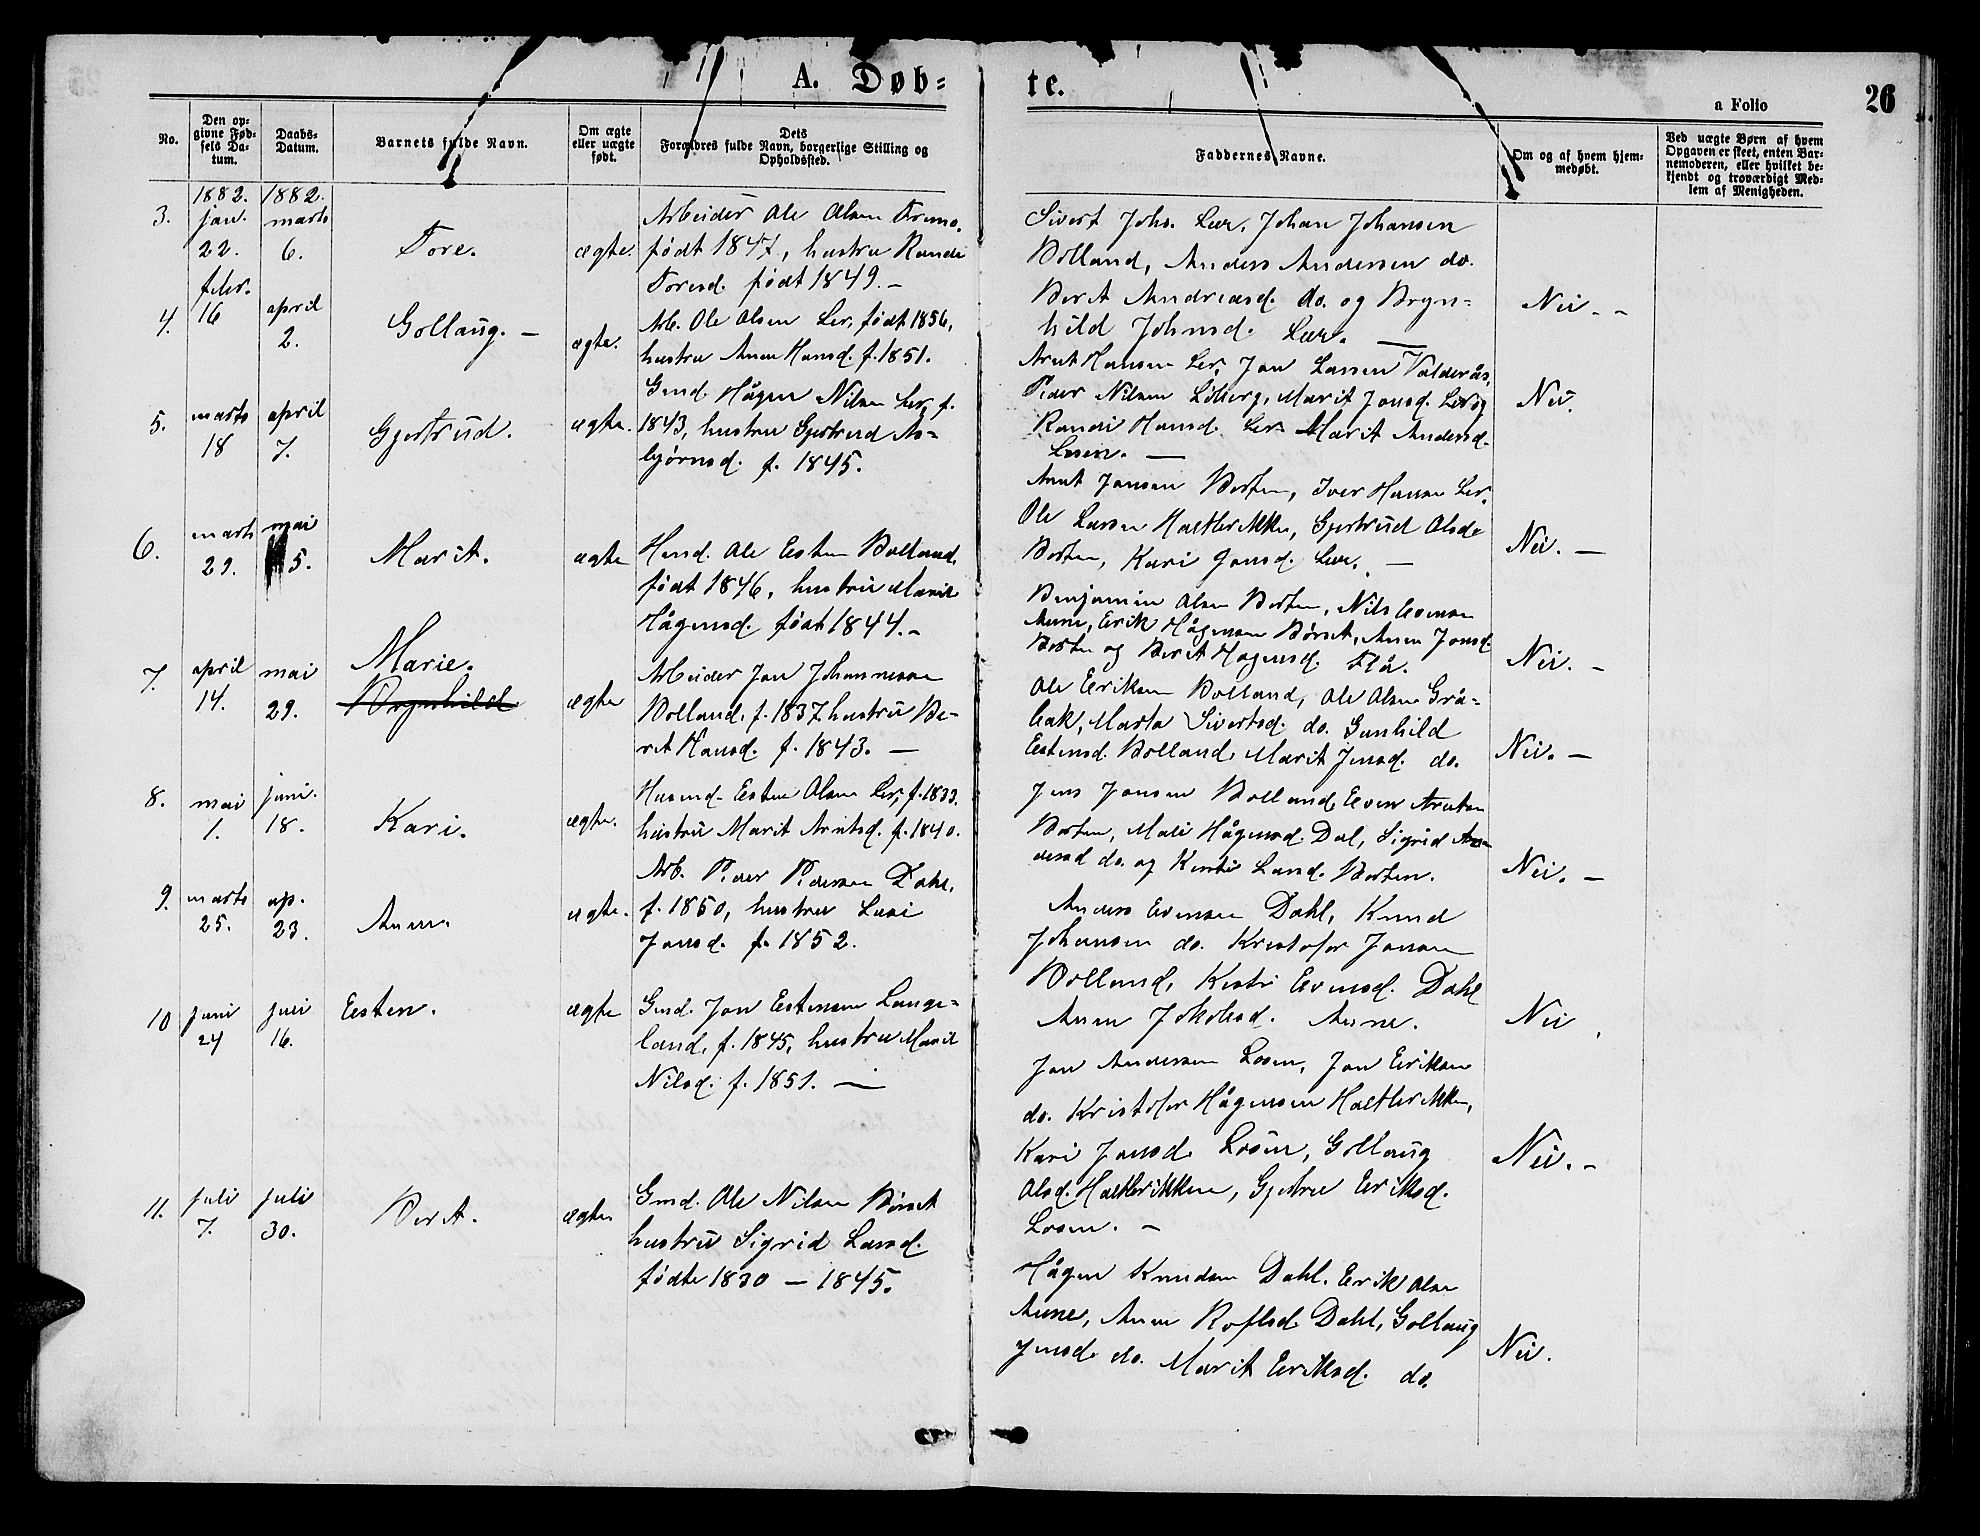 A. Døb-
te.
a Folio
26
No.
Den op-
givne Fød-
sels Da-
tum.
Daabs-
Datum.
Barnets fulde Navn.
Om ægte
eller uægte
født.
Dets
Forældres fulde Navn, borgerlige Stilling og
Opholdssted.
Faddernes Navne.
Om og af hvem hjem-
medøbt.
Ved uægte Børn af hvem
Opgaven er skeet, enten Bar-
nemoderen, eller hvilket be-
kjendt og troværdigt Med-
lem af Menigheden.
3.
1882.
jan.
22.
1882.
marts
6.
Tore.
ægte.
Arbeider Ole Olsen
født 1847, hustru Randi
Toresd. født 1849. –
Sivert Johs. Leer, Johan Johansen
Volland, Anders Andersen do.
Berit Andreasd. do. og Bryn-
hild Johnsd. Leer. —
Nei. –
4.
febr.
16
april
2.
Gollaug. –
ægte.
Arb. Ole Olsen Ler, født 1856,
hustru Anne Hansd. f. 1851.
Arnt Hansen Ler, Jon Larsen Valderås,
Peder Nilsen Løberg, Marit Jonsd. Ler og
Randi Hansd. Ler Marit Andersd.
Losen. —
Nei.
5.
marts
18
april
7.
Gjertrud.
ægte.
Gmd. Hågen Nilsen Ler, f.
1843, hustru Gjertrud As-
bjørnsd. f. 1845.
Arnt Jonsen Borten, Iver Hansen Ler,
Ole Larsen Haltbrekken, Gjertrud Olsd.
Borten, Kari Jonsd. Leer. –
Nei. —
6.
marts
29.
mai
5.
Marit.
ægte
Husd. Ole Esten Volland,
født 1846, hustru Marit
Hågensd. født 1844. –
Benjamin Olsen Borten, Nils Evensen
Aune, Erik Hågensen Børset, Anne Jonsd.
Borten og Berit Hagensd. Flå.
Nei. –
7.
april
14.
mai
29.
Marie.
Brynhild
ægte
Arbeider Jon Johannesen
Volland, f. 1837 hustru Be-
rit Hansd. f. 1843. —
Ole Eriksen Volland, Ole Olsen Grå-
bak, Marta Sivertsd. do. Gunhild
Estensd. Volland, Marit Jensd. do.
Nei. —
8.
mai
1.
juni.
18.
Kari.
ægte.
Husmd. Esten Olsen Ler, f. 1833.
hustru Marit Arntsd. f. 1840.
Jens Jonsen Volland, Even Arntsen
Borten, Mali Hågensd. Dal, Sigrid An-
dersd do. og Kirsti Larsd. Borten.
Nei. —
9.
marts
25.
ap.
23.
Anne.
ægte.
Arb. Peder Pedersen Dahl,
f. 1850, hustru
Jonsd. f. 1852.
Anders Evensen Dahl, Knud
Johansen do. Kristofer Jonsen
Volland, Kirsti Evensd. Dahl
Anne Jakobsd. Aune.
Nei
10
juni
24
juli
16.
Esten.
ægte
Gmd. Jon Estensen Lange-
land, f. 1845, hustru Marit
Nilsd. f. 1851. —
Jon Andersen Losen, Jon Eriksen
do. Kristofer Hågensen Haltbrekken,
Kari Jonsd. Losen, Gollaug
Olsd. Haltbrekken, Gjertru Eriksd.
Losen. –
Nei. –
11.
juli
7.
juli
30.
Berit.
ægte
Gmd. Ole Nilsen Børset
hustru Sigrid Larsd.
fødte 1830 – 1845.
Hågen Knudsen Dahl. Erik Olsen
Aune, Anne Rofled. Dahl, Gollaug
Jensd. do. Marit Eriksd. do.
Nei.